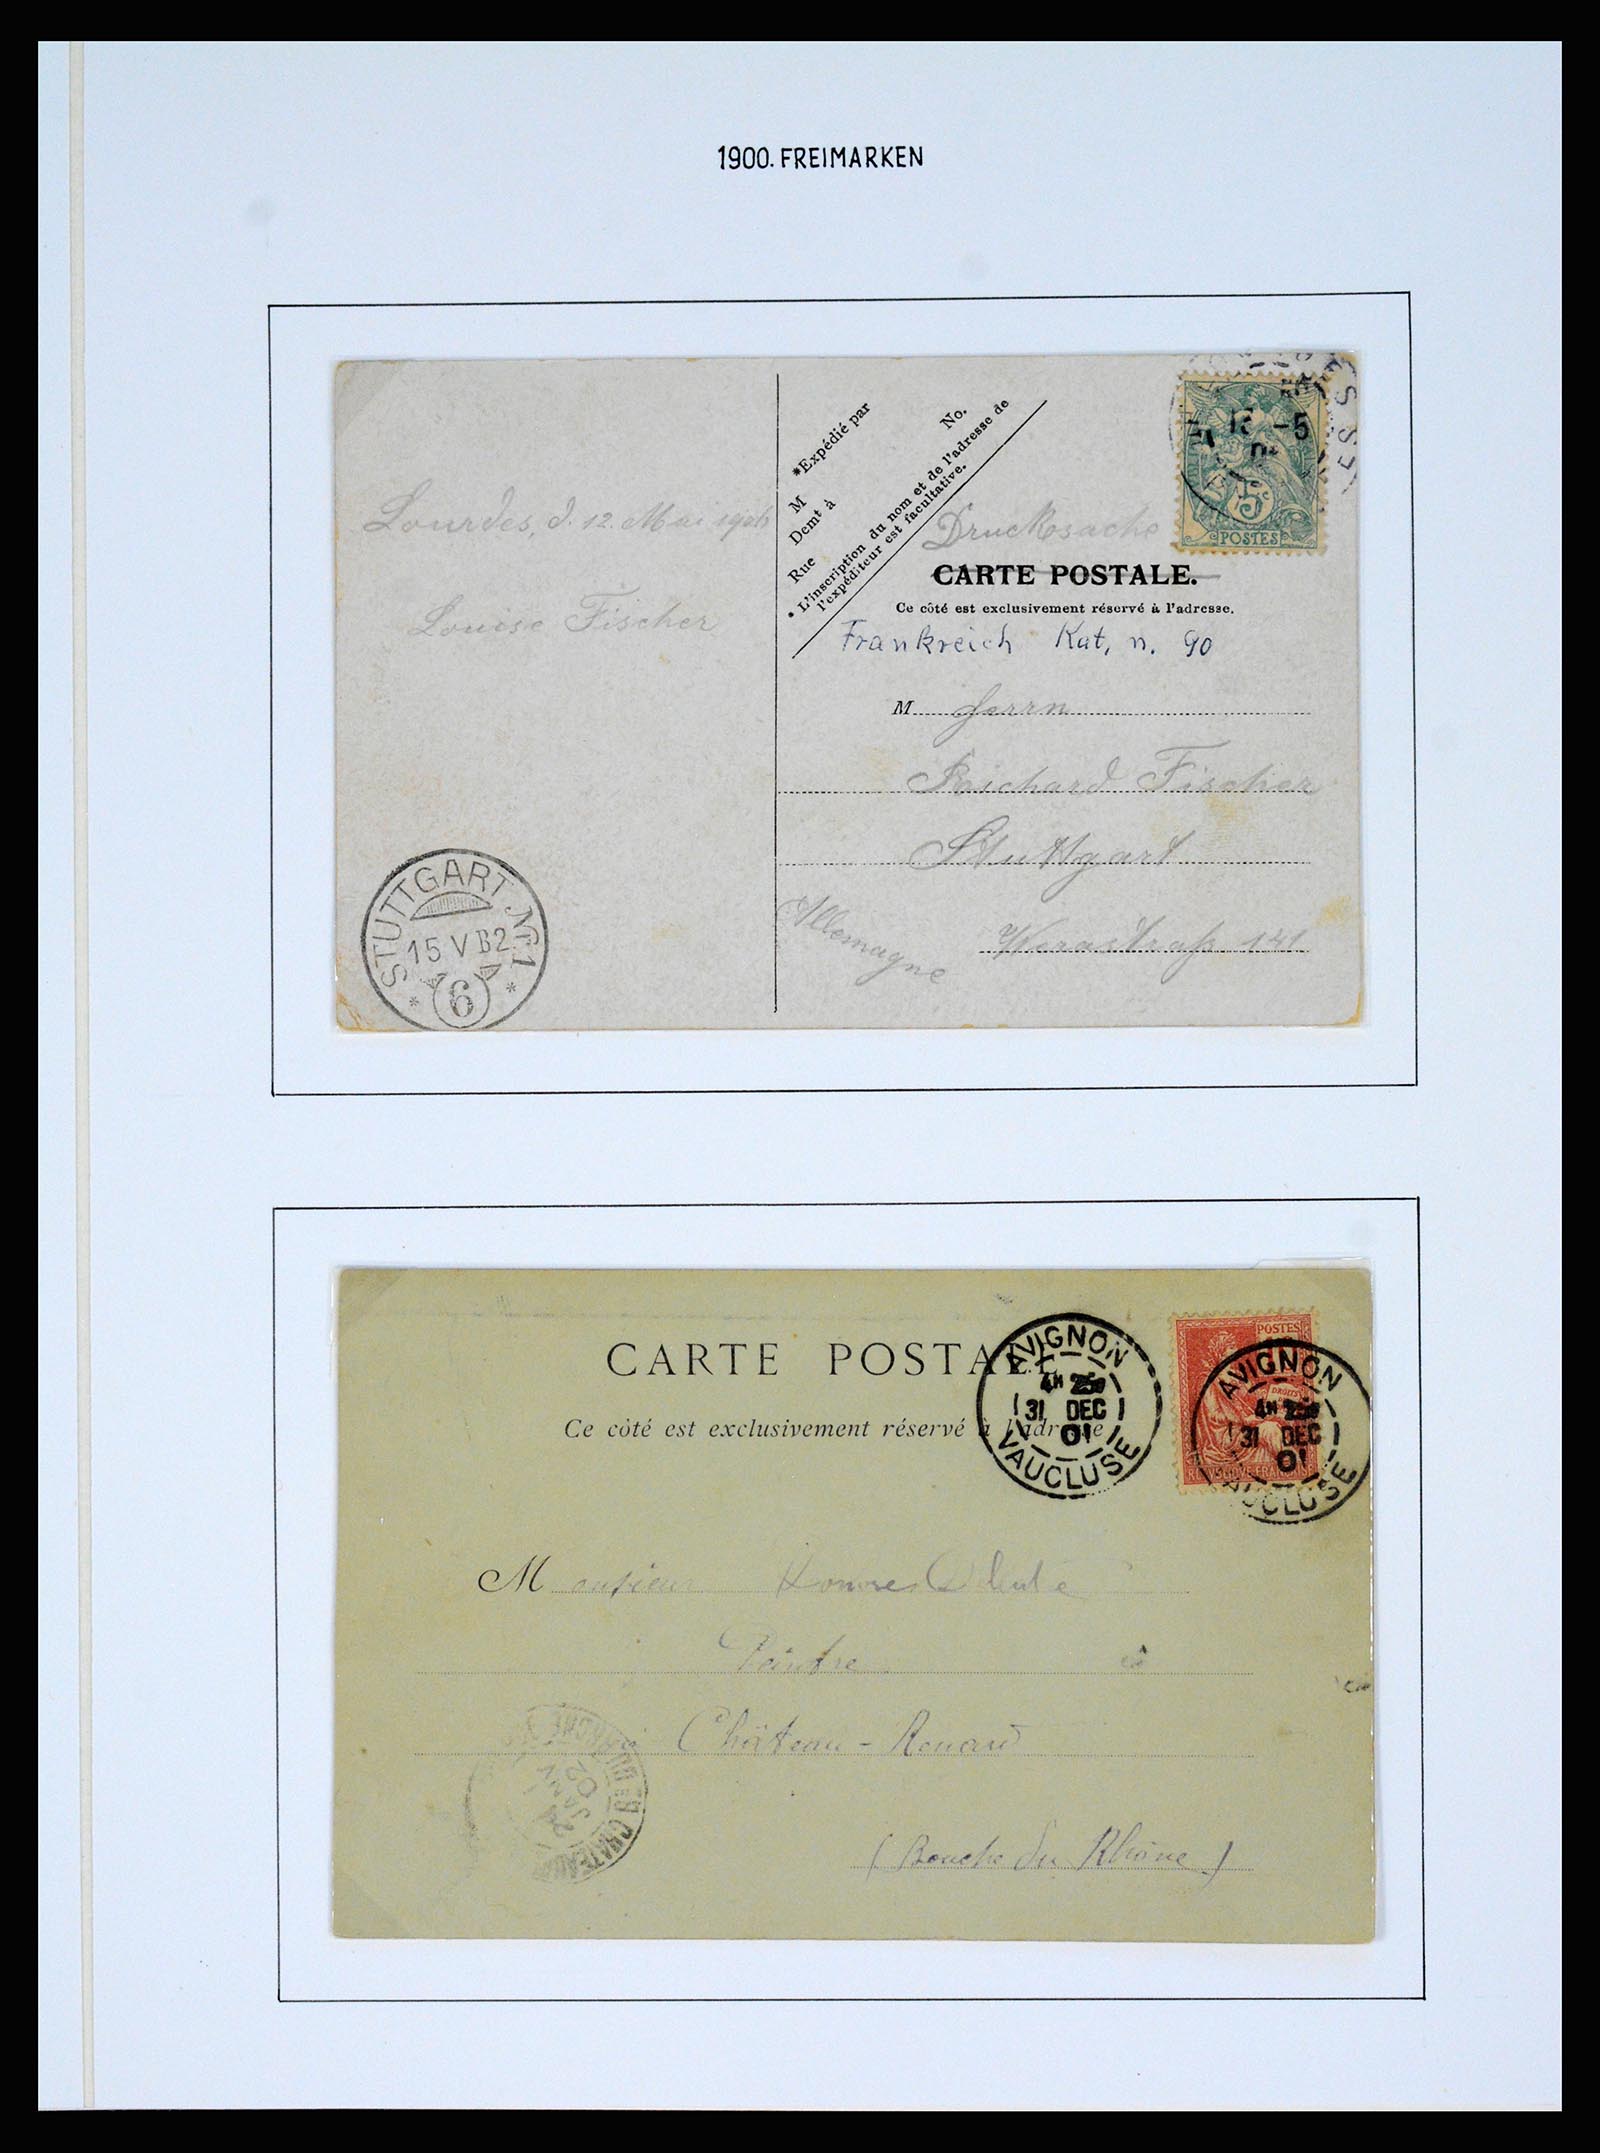 1900. FREIMARKEN
*Expédié par
No.
M
Demt à
Rue
* L'inscription du nom et de l'adresse de
l'expéditeur est facultative.
-5
5c
POSTES
Lourdes, d. 12. Mai
Druckosache
CARTE POSTALE.
Ce côté est exclusivement réservé à l'adresse.
Louise Fischer
Frankreich Kat. n. 90
M Herrn
Reichard Fischer
Stuttgart
Allemagne
141
STUTTGART Nr. 1
15 V B2
6
CARTE POSTALE
Ce côté est exclusivement réservé à l'adresse
AVIGNON
31 DEC
01
VAUCLUSE
POSTES
DROITS
AVIGNON
31 DEC
01
VAUCLUSE
Monsieur
Peintre
à
Château-Renard
JANV
02
CHATEAU
(Bouche du Rhône)